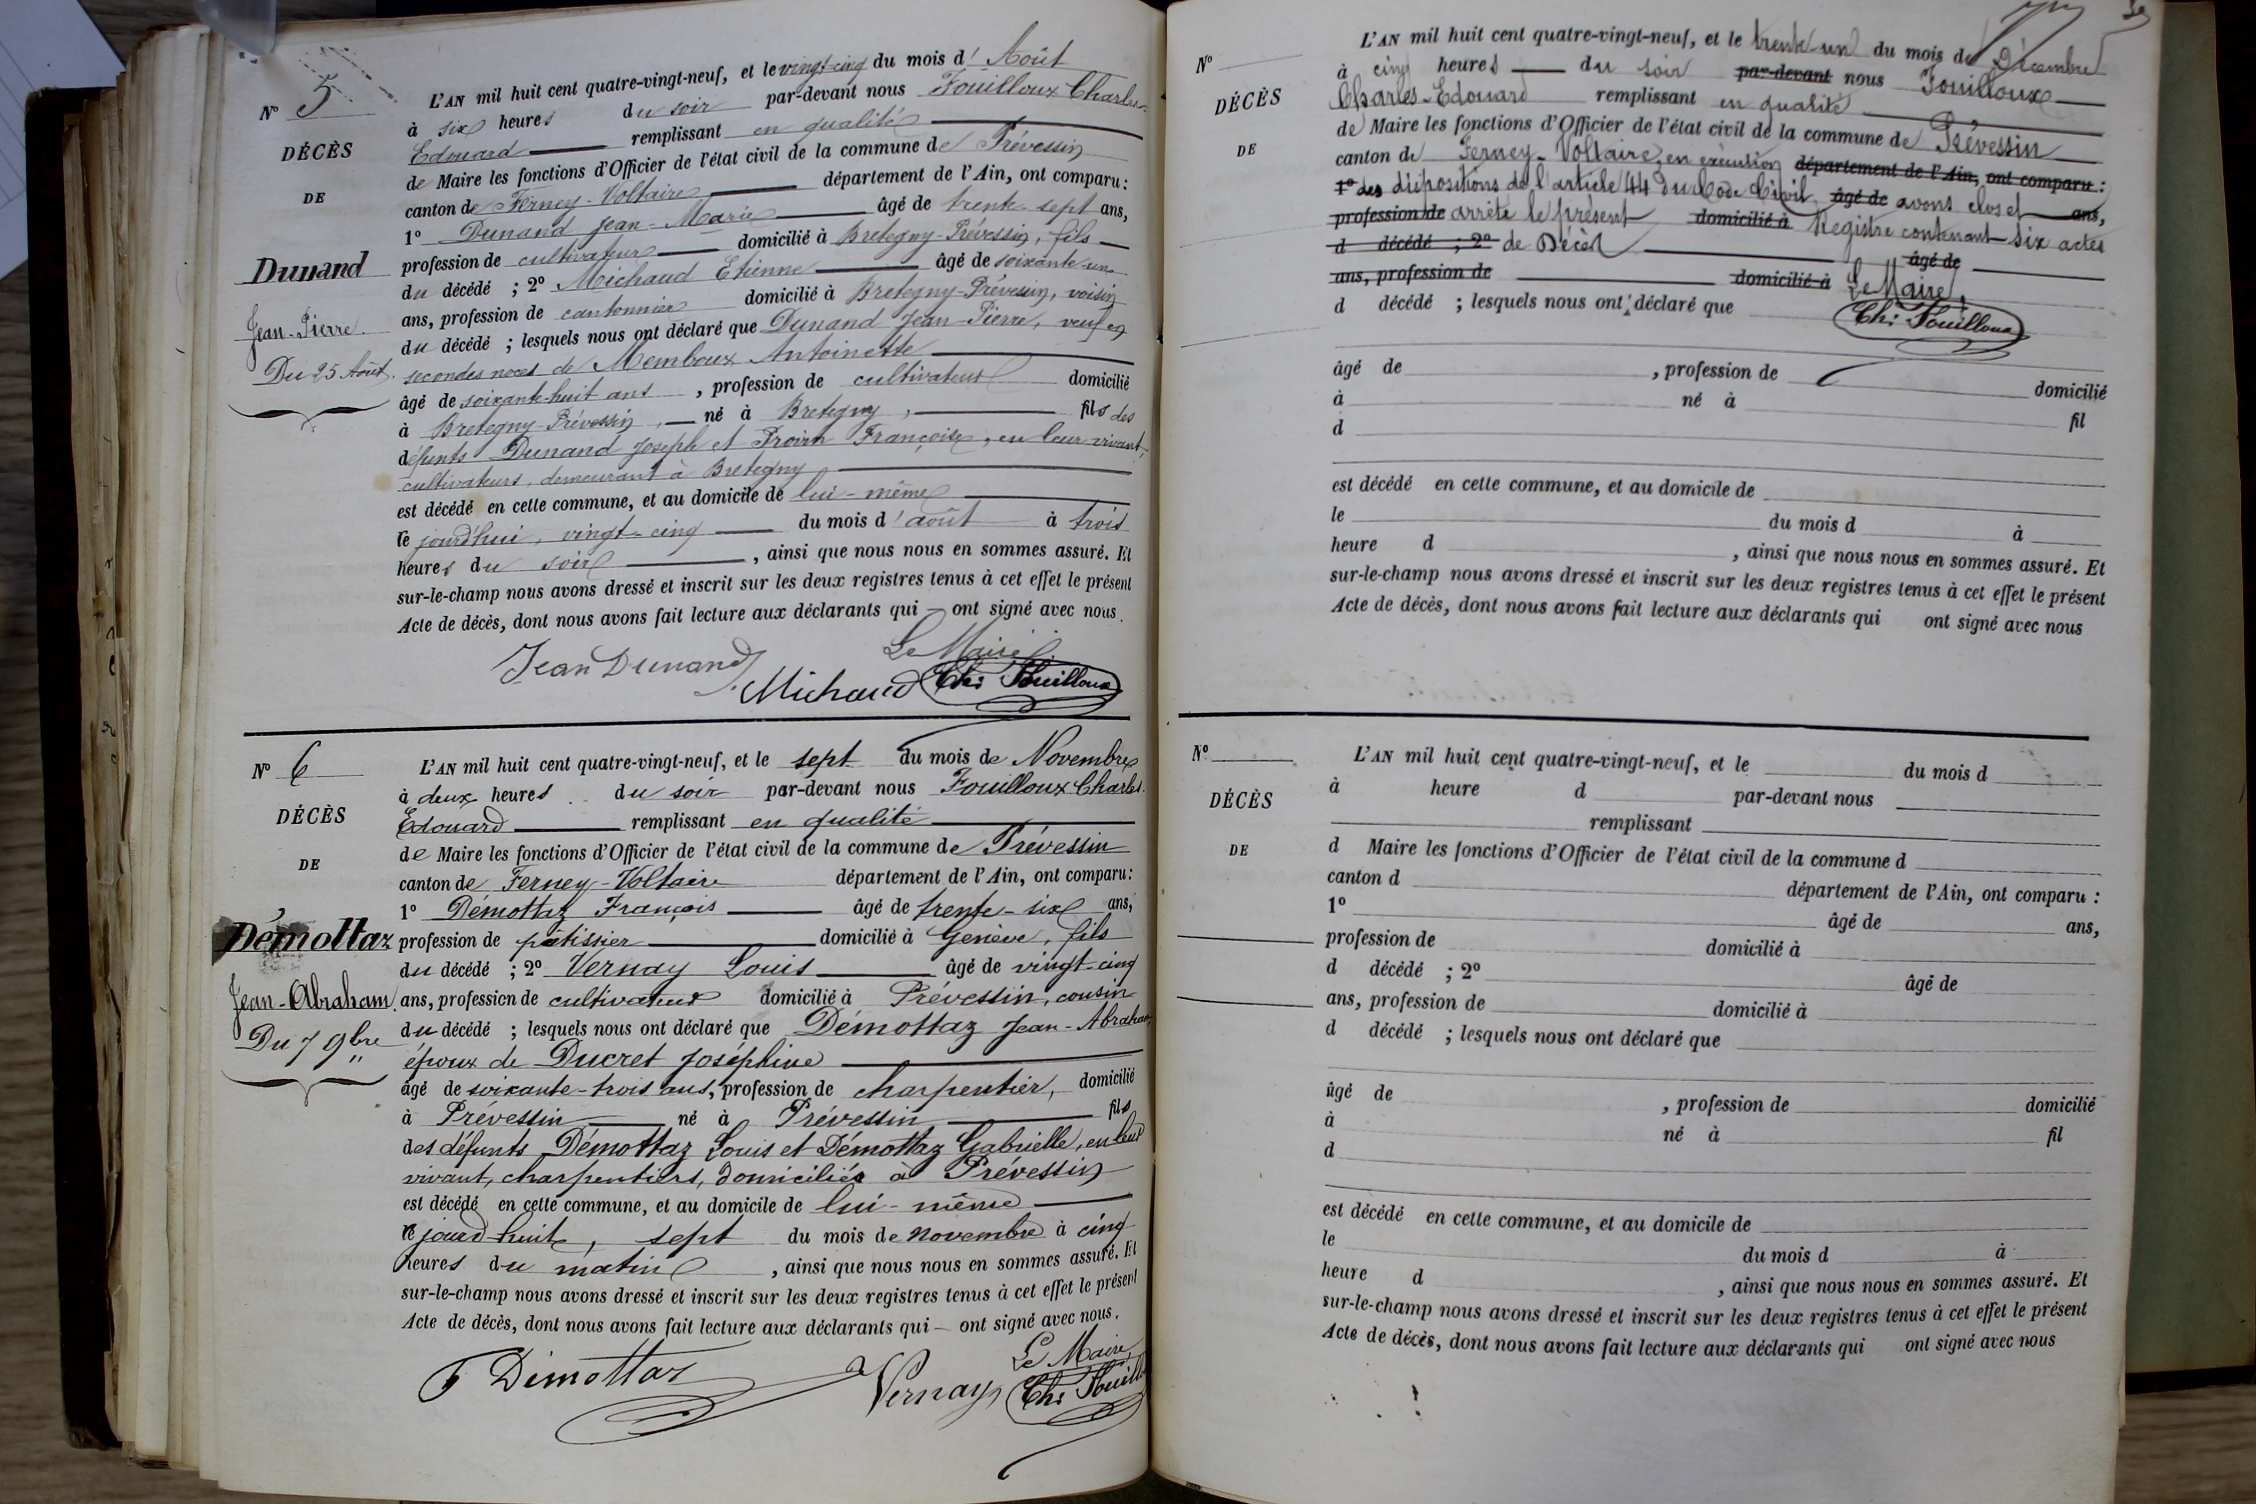 N° 5
DÉCÈS
DE
Dunand
Jean-Pierre.
Du 25 Août.
L'AN mil huit cent quatre-vingt-neuf, et le vingt-cinq du mois d'Août
à six heures du soir par-devant nous Fouilloux Charles
Edouard remplissant en qualité
de Maire les fonctions d'Officier de l'état civil de la commune de Prévessin
canton de Ferney-Voltaire département de l'Ain, ont comparu :
1° Dunand Jean-Marie âgé de trente-sept ans,
profession de cultivateur domicilié à Bretegny-Prévessin, fils
du décédé ; 2° Michaud Etienne âgé de soixante-un
ans, profession de cantonnier domicilié à Bretegny-Prévessin, voisin
du décédé ; lesquels nous ont déclaré que Dunand Jean-Pierre, veuf en
secondes noces de Memboux Antoinette
âgé de soixante-huit ans, profession de cultivateur domicilié
à Bretegny-Prévessin, né à Bretegny, fils des
défunts Dunand Joseph et Françoise, en leur vivant,
cultivateurs, demeurant à Bretegny
est décédé en cette commune, et au domicile de lui-même
le jourd'hui, vingt-cinq du mois d'août à trois
heures du soir, ainsi que nous nous en sommes assuré. Et
sur-le-champ nous avons dressé et inscrit sur les deux registres tenus à cet effet le présent
Acte de décès, dont nous avons fait lecture aux déclarants qui ont signé avec nous.
Le Maire.
Jean Dunand Michaud Ch: Fouilloux
N° 6
DÉCÈS
DE
Démottaz
Jean-Abraham.
Du 7 9bre
L'AN mil huit cent quatre-vingt-neuf, et le sept du mois de Novembre
à deux heures du soir par-devant nous Fouilloux Charles
Edouard remplissant en qualité
de Maire les fonctions d'Officier de l'état civil de la commune de Prévessin
canton de Ferney-Voltaire département de l'Ain, ont comparu :
1° Démottaz François âgé de trente-six ans,
profession de pâtissier domicilié à Genève, fils
du décédé ; 2° Vernay Louis âgé de vingt-cinq
ans, profession de cultivateur domicilié à Prévessin, cousin
du décédé ; lesquels nous ont déclaré que Démottaz Jean-Abraham
époux de Ducret Joséphine
âgé de soixante-trois ans, profession de charpentier, domicilié
à Prévessin né à Prévessin fils
des défunts Démottaz Louis et Démottaz Gabrielle, en leur
vivant, charpentiers, domiciliés à Prévessin
est décédé en cette commune, et au domicile de lui-même
le jourd'huit, sept du mois de novembre à cinq
heures du matin, ainsi que nous nous en sommes assuré. Et
sur-le-champ nous avons dressé et inscrit sur les deux registres tenus à cet effet le présent
Acte de décès, dont nous avons fait lecture aux déclarants qui — ont signé avec nous.
Le Maire
F Démottaz Vernay Ch: Fouill
N°
DÉCÈS
DE
L'AN mil huit cent quatre-vingt-neuf, et le trente-un du mois de Décembre
à cinq heures du soir par-devant nous Fouilloux
Charles-Edouard remplissant en qualité
de Maire les fonctions d'Officier de l'état civil de la commune de Prévessin
canton de Ferney-Voltaire, en exécution département de l'Ain, ont comparu :
1° des dispositions de l'article 44 du Code Civil, âgé de avons clos et ans,
profession de arrêté le présent domicilié à Registre contenant six actes
d décédé ; 2° de Décès âgé de
ans, profession de domicilié à Le Maire,
d décédé ; lesquels nous ont déclaré que Ch: Fouilloux
âgé de , profession de domicilié
à né à fil
d
est décédé en cette commune, et au domicile de
le du mois d à
heure d , ainsi que nous nous en sommes assuré. Et
sur-le-champ nous avons dressé et inscrit sur les deux registres tenus à cet effet le présent
Acte de décès, dont nous avons fait lecture aux déclarants qui ont signé avec nous
N°
DÉCÈS
DE
L'AN mil huit cent quatre-vingt-neuf, et le du mois d
à heure d par-devant nous
remplissant
d Maire les fonctions d'Officier de l'état civil de la commune d
canton d département de l'Ain, ont comparu :
1° âgé de ans,
profession de domicilié à
d décédé ; 2° âgé de
ans, profession de domicilié à
d décédé ; lesquels nous ont déclaré que
âgé de , profession de domicilié
à né à fil
d
est décédé en cette commune, et au domicile de
le du mois d à
heure d , ainsi que nous nous en sommes assuré. Et
sur-le-champ nous avons dressé et inscrit sur les deux registres tenus à cet effet le présent
Acte de décès, dont nous avons fait lecture aux déclarants qui ont signé avec nous